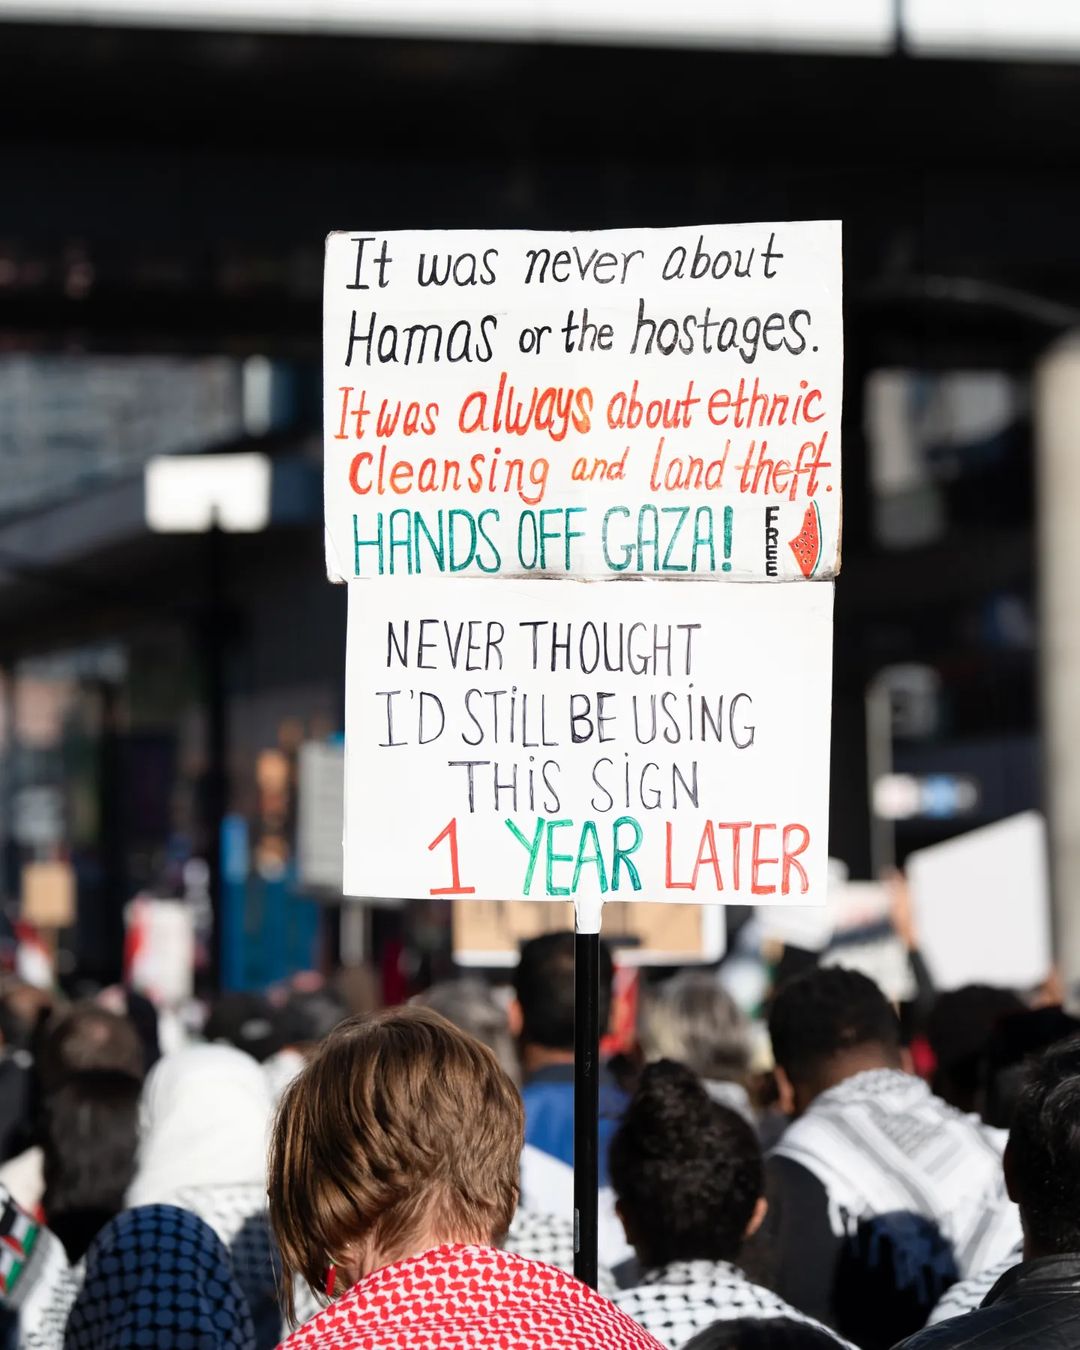 It was never about
Hamas or the hostages.
It was always about ethnic
cleansing and land theft.
HANDS OFF GAZA!
FREE
NEVER THOUGHT
I'D STiLL BE USiNG
THiS SiGN
1 YEAR LATER